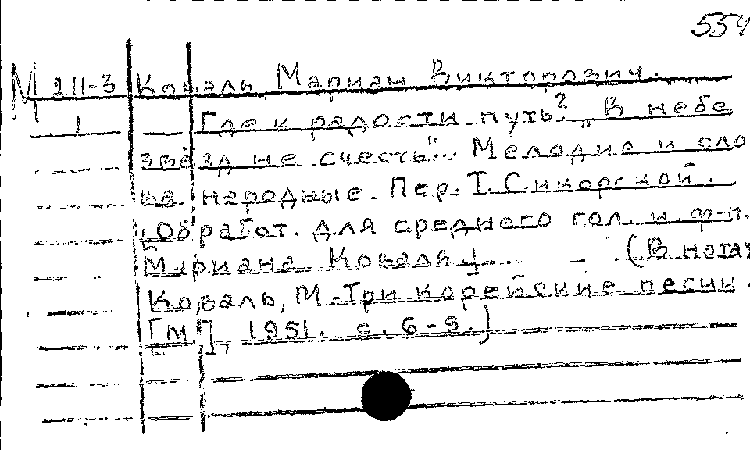 554
М 211-3 Коваль, Мариан Викторович.
1 Где к радости путь? „В небе
звезд не счесть". Мелодия и сло
ва народные. Пер. Т. Сикорской.
Обработ. для среднего гол. и ф-п.
Мариана Коваля. (В нотах
Коваль, М. Три корейские песни.
[М], 1951. с. 6-9.)